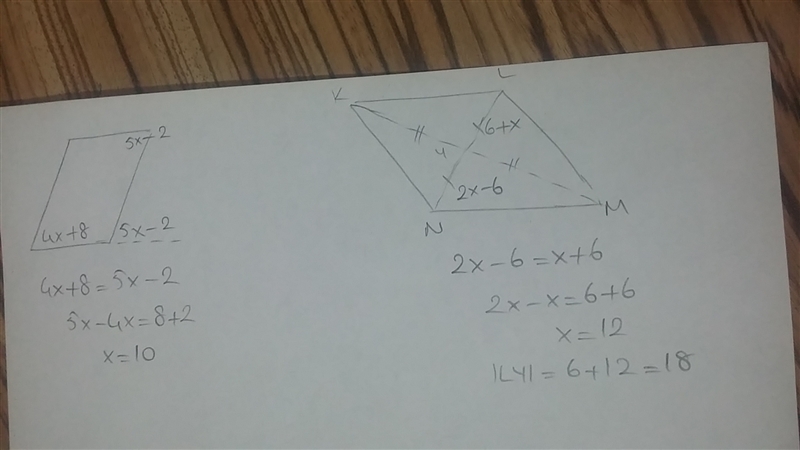 5x-2
4x+8 5x-2
4x+8=5x-2
5x-4x=8+2
x=10
K L
6+x
y
2x-6
N M
2x-6=x+6
2x-x=6+6
x=12
|LY|=6+12=18